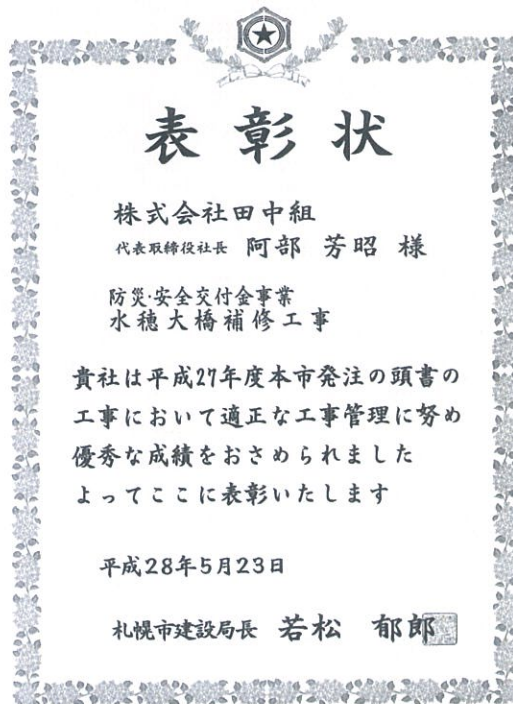 表彰状
株式会社田中組
代表取締役社長 阿部 芳昭 様
防災・安全交付金事業
水穂大橋補修工事
貴社は平成27年度本市発注の頭書の
工事において適正な工事管理に努め
優秀な成績をおさめられました
よってここに表彰いたします
平成28年5月23日
札幌市建設局長 若松 郁郎